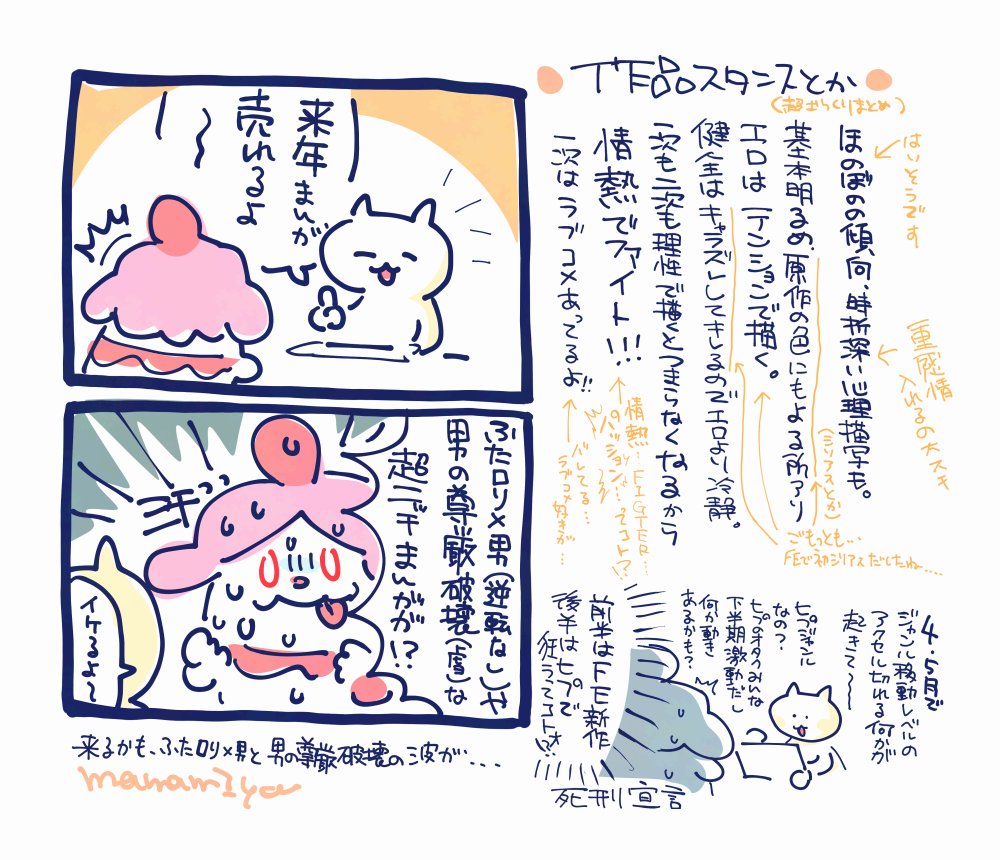 下品スタンスとか
(超ざっくりまとめ)
ほのぼの傾向、時折深い心理描写も。
基本明るめ、原作の色にもよる所アリ
エロは一テンションで描く。
健全はキャラズレしてきしるのでエロより冷静。
一次も二次も理性で描くとつまらなくなるから
情熱でファイト!!!
一次はラブコメあってるよ!!
はいそうです
重感情
入れるの大スキ
(シリアスとか)
ごもっとも…
FEで初シリアスだしたね....
情熱…FIGTER…
パッション…ってコト!?
バレてる…
ラブコメ好きが…
来年まんが
売れるよ
ふたロリ×男(逆転なし)や
男の尊厳破壊(虐)な
超ニッチまんがが!?
イケるよ〜
来るかも、ふたロリ×男と男の尊厳破壊の波が...
manamiya
4.5月で
ジャンル移動レベルの
アクセル切れる何かが
起きて〜〜
ヒプジャンル
なの?
ヒプのオタクみんな
下半期激動だし
何か動き
あるかも?
前半はFE新作
後半はヒプで
狂うってコトォ!?
死刑宣言